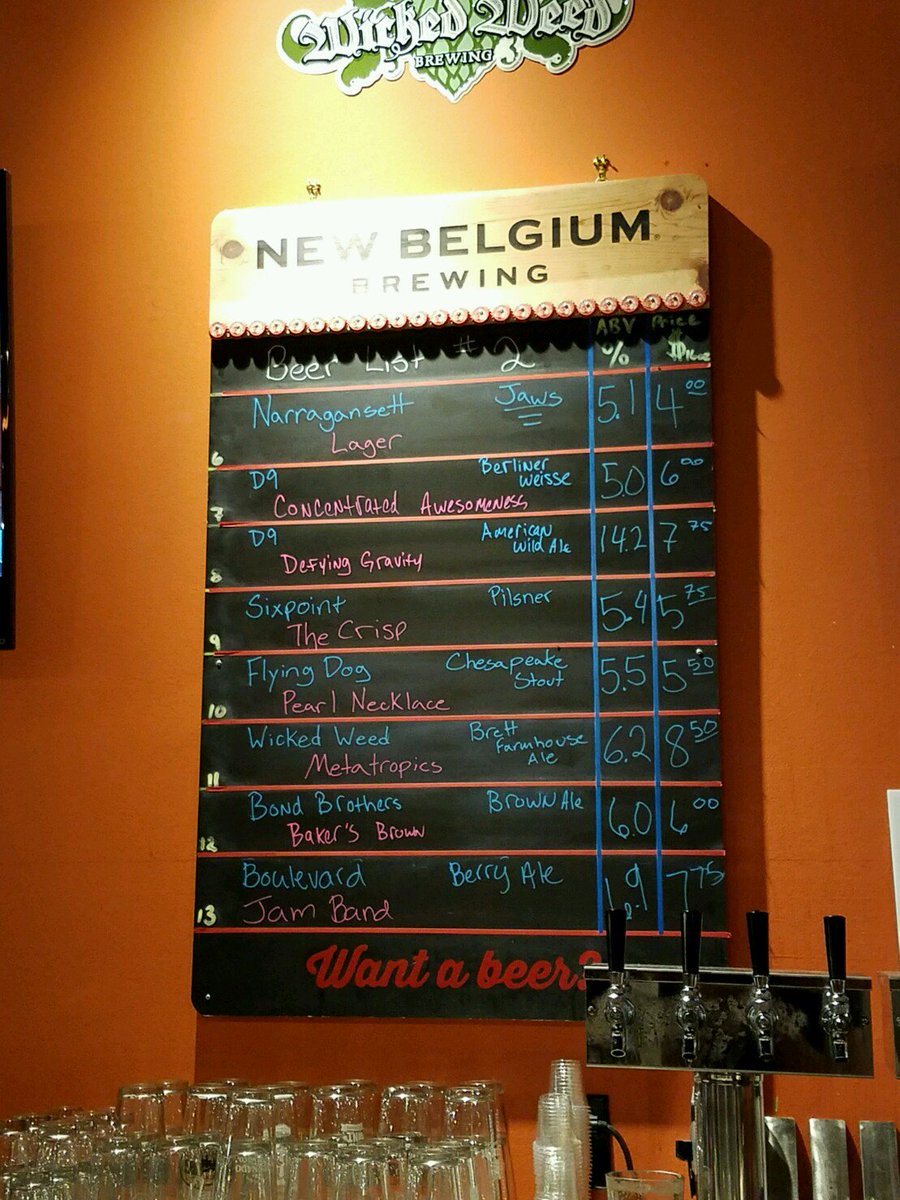 Wicked Weed
BREWING
NEW BELGIUM
BREWING
ABV Price
Beer List # 2 % $
Narragansett Jaws 5.1 4.00
Lager
6
D9 Berliner Weisse 5.0 6.00
Concentrated Awesomeness
7
D9 American Wild Ale 14.2 7.75
Defying Gravity
8
Sixpoint Pilsner 5.4 5.75
The Crisp
9
Flying Dog Chesapeake Stout 5.5 5.50
Pearl Necklace
10
Wicked Weed Brett Farmhouse Ale 6.2 8.50
Metatropics
11
Bond Brothers Brown Ale 6.0 6.00
Baker's Brown
12
Boulevard Berry Ale 7.75
Jam Band
13
Want a beer?